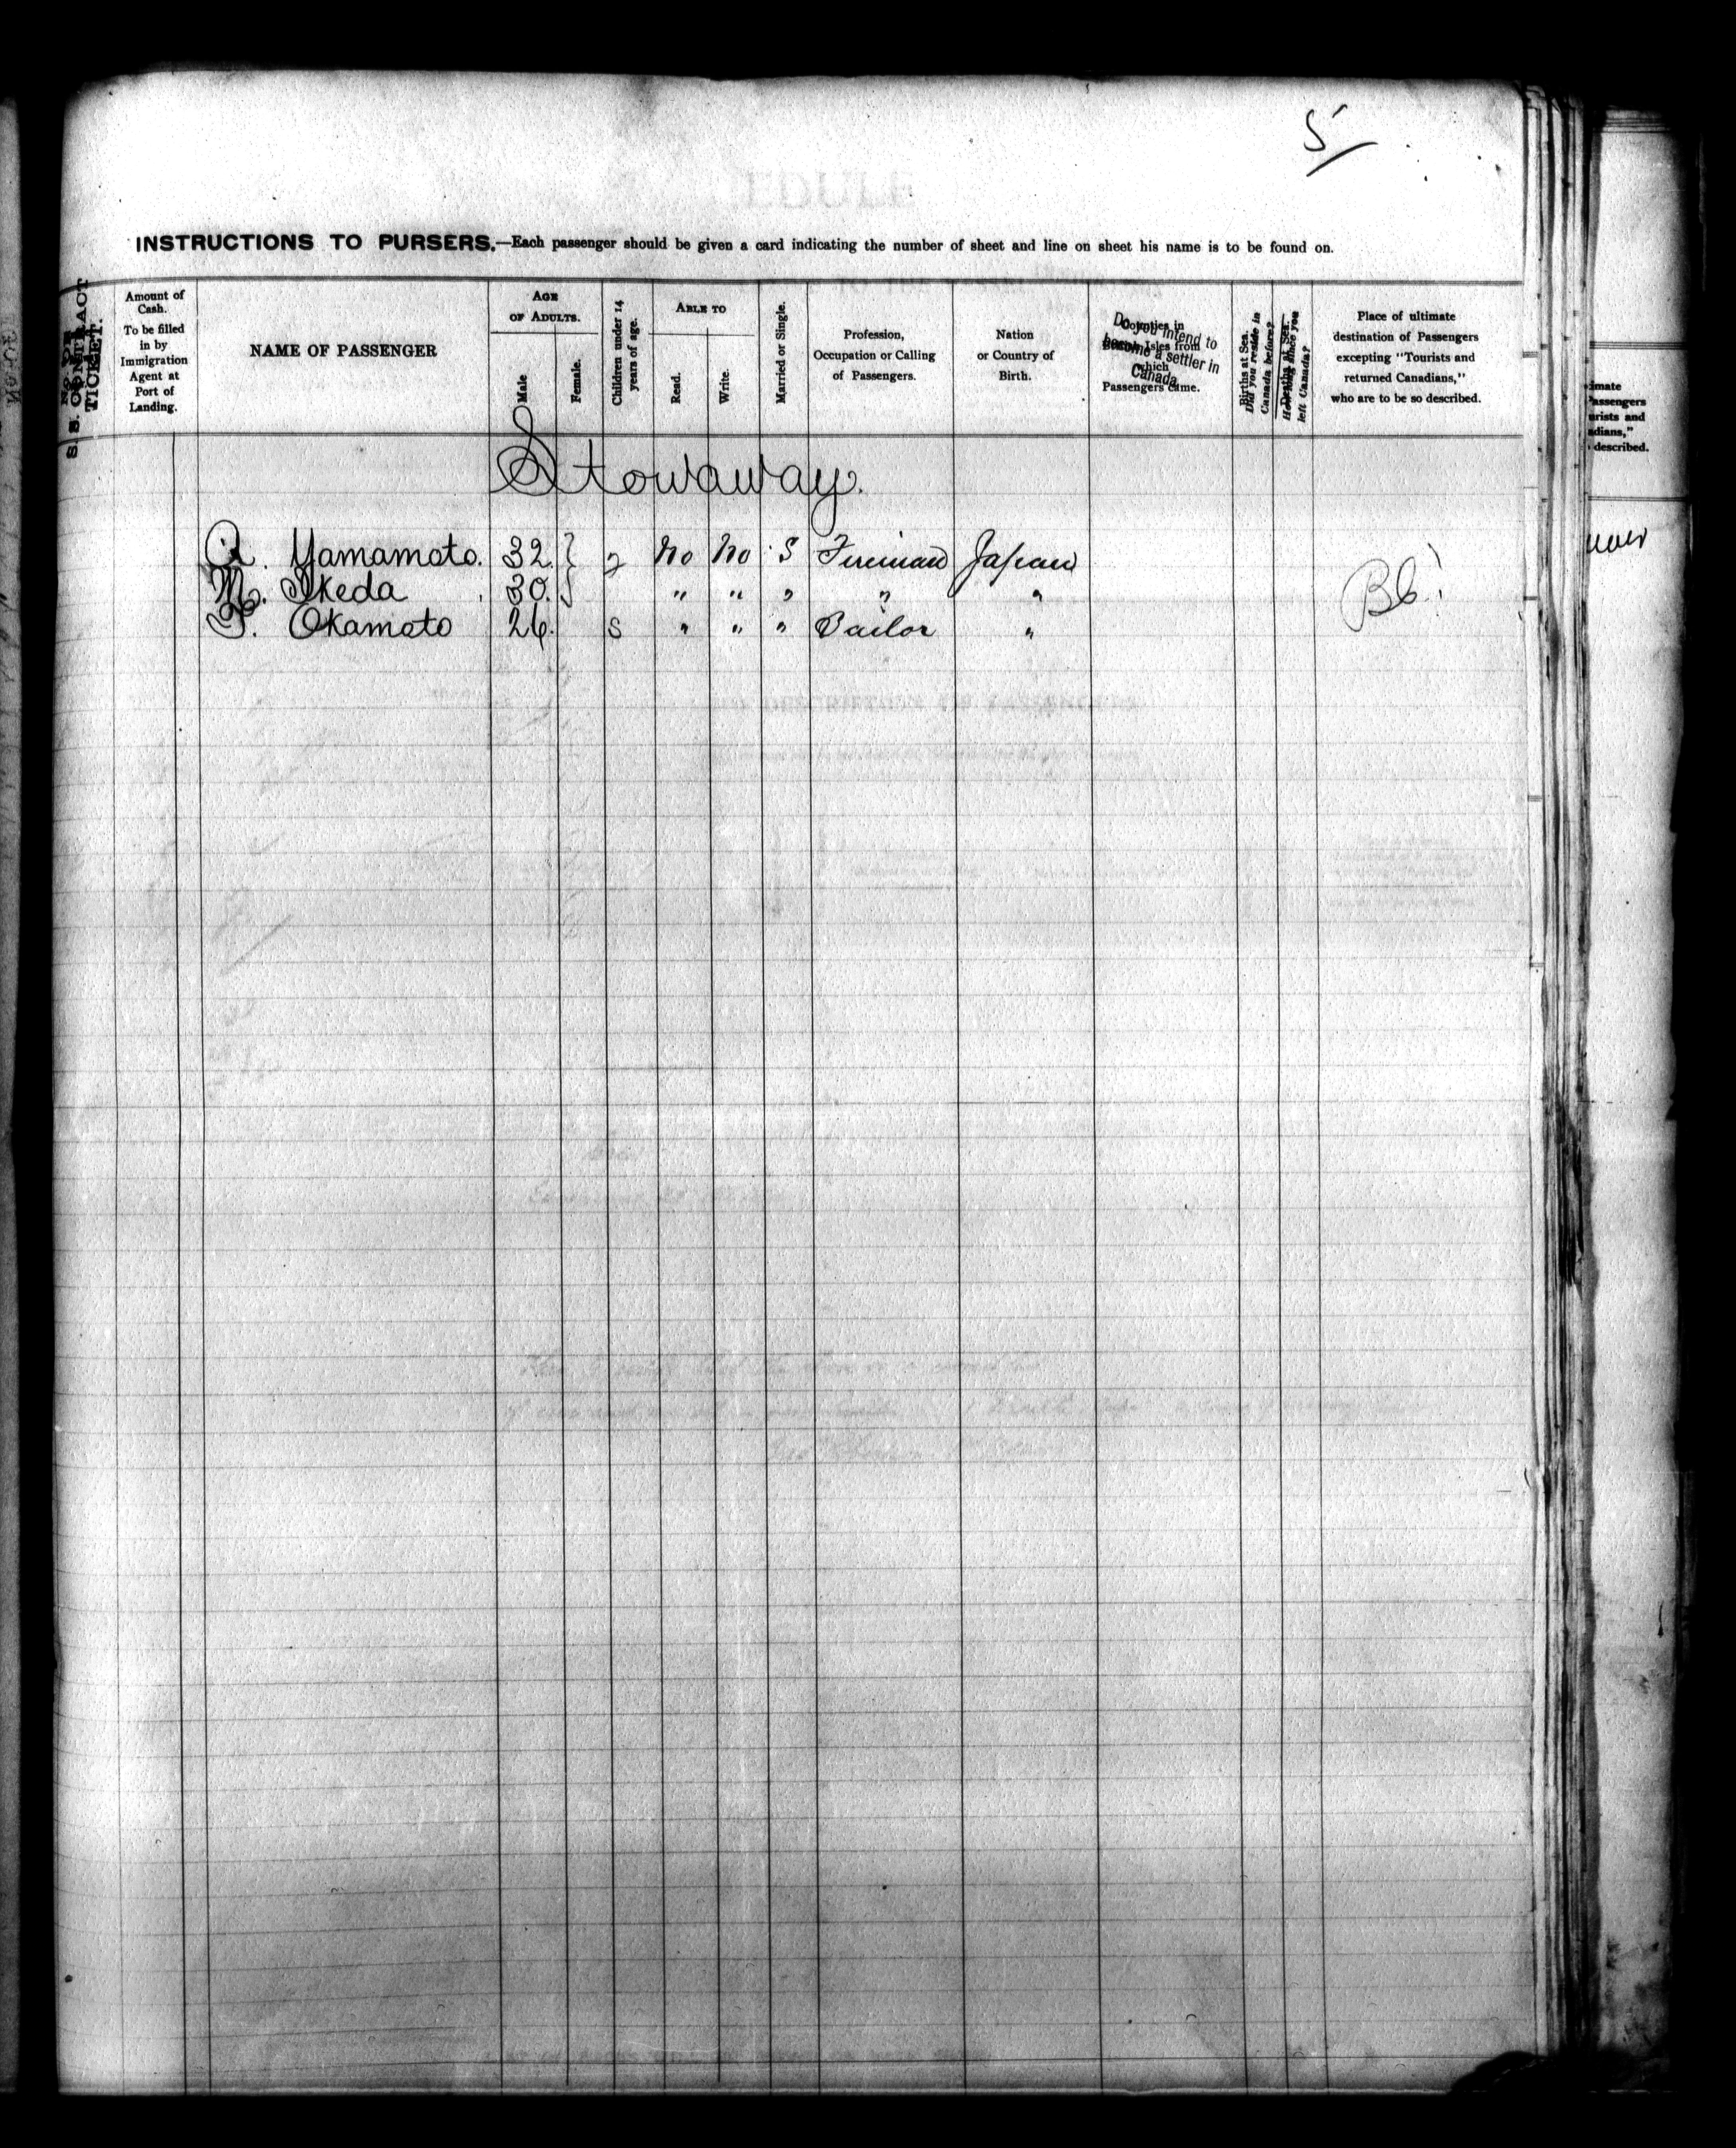 5
INSTRUCTIONS TO PURSERS.—Each passenger should be given a card indicating the number of sheet and line on sheet his name is to be found on.
S. S. CONTRACT TICKET.
Amount of Cash. To be filled in by Immigration Agent at Port of Landing.
NAME OF PASSENGER
AGE OF ADULTS.
Male
Female.
Children under 14 years of age.
ABLE TO
Read.
Write.
Married or Single.
Profession, Occupation or Calling of Passengers.
Nation or Country of Birth.
Counties in British Isles from which Passengers came.
Do you intend to become a settler in Canada
Births at Sea.
Did you reside in Canada before?
Deaths at Sea.
How long since you left Canada?
Place of ultimate destination of Passengers excepting "Tourists and returned Canadians," who are to be so described.
Stowaway.
Yamamoto. 32. } 2 No No S Fireman Japan
M. Ikeda 30. } " " " " "
Okamoto 26. S " " " Sailor "
imate
Passengers
urists and
adians,"
described.